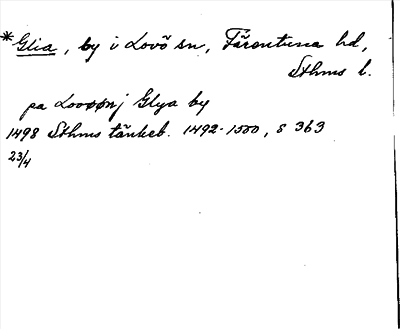 *Glia, by i Lovö sn, Färentuna hd,
Sthms l.
pa Looøønj Glya by
1498 Sthms tänkeb. 1492-1500, s 363
23/4